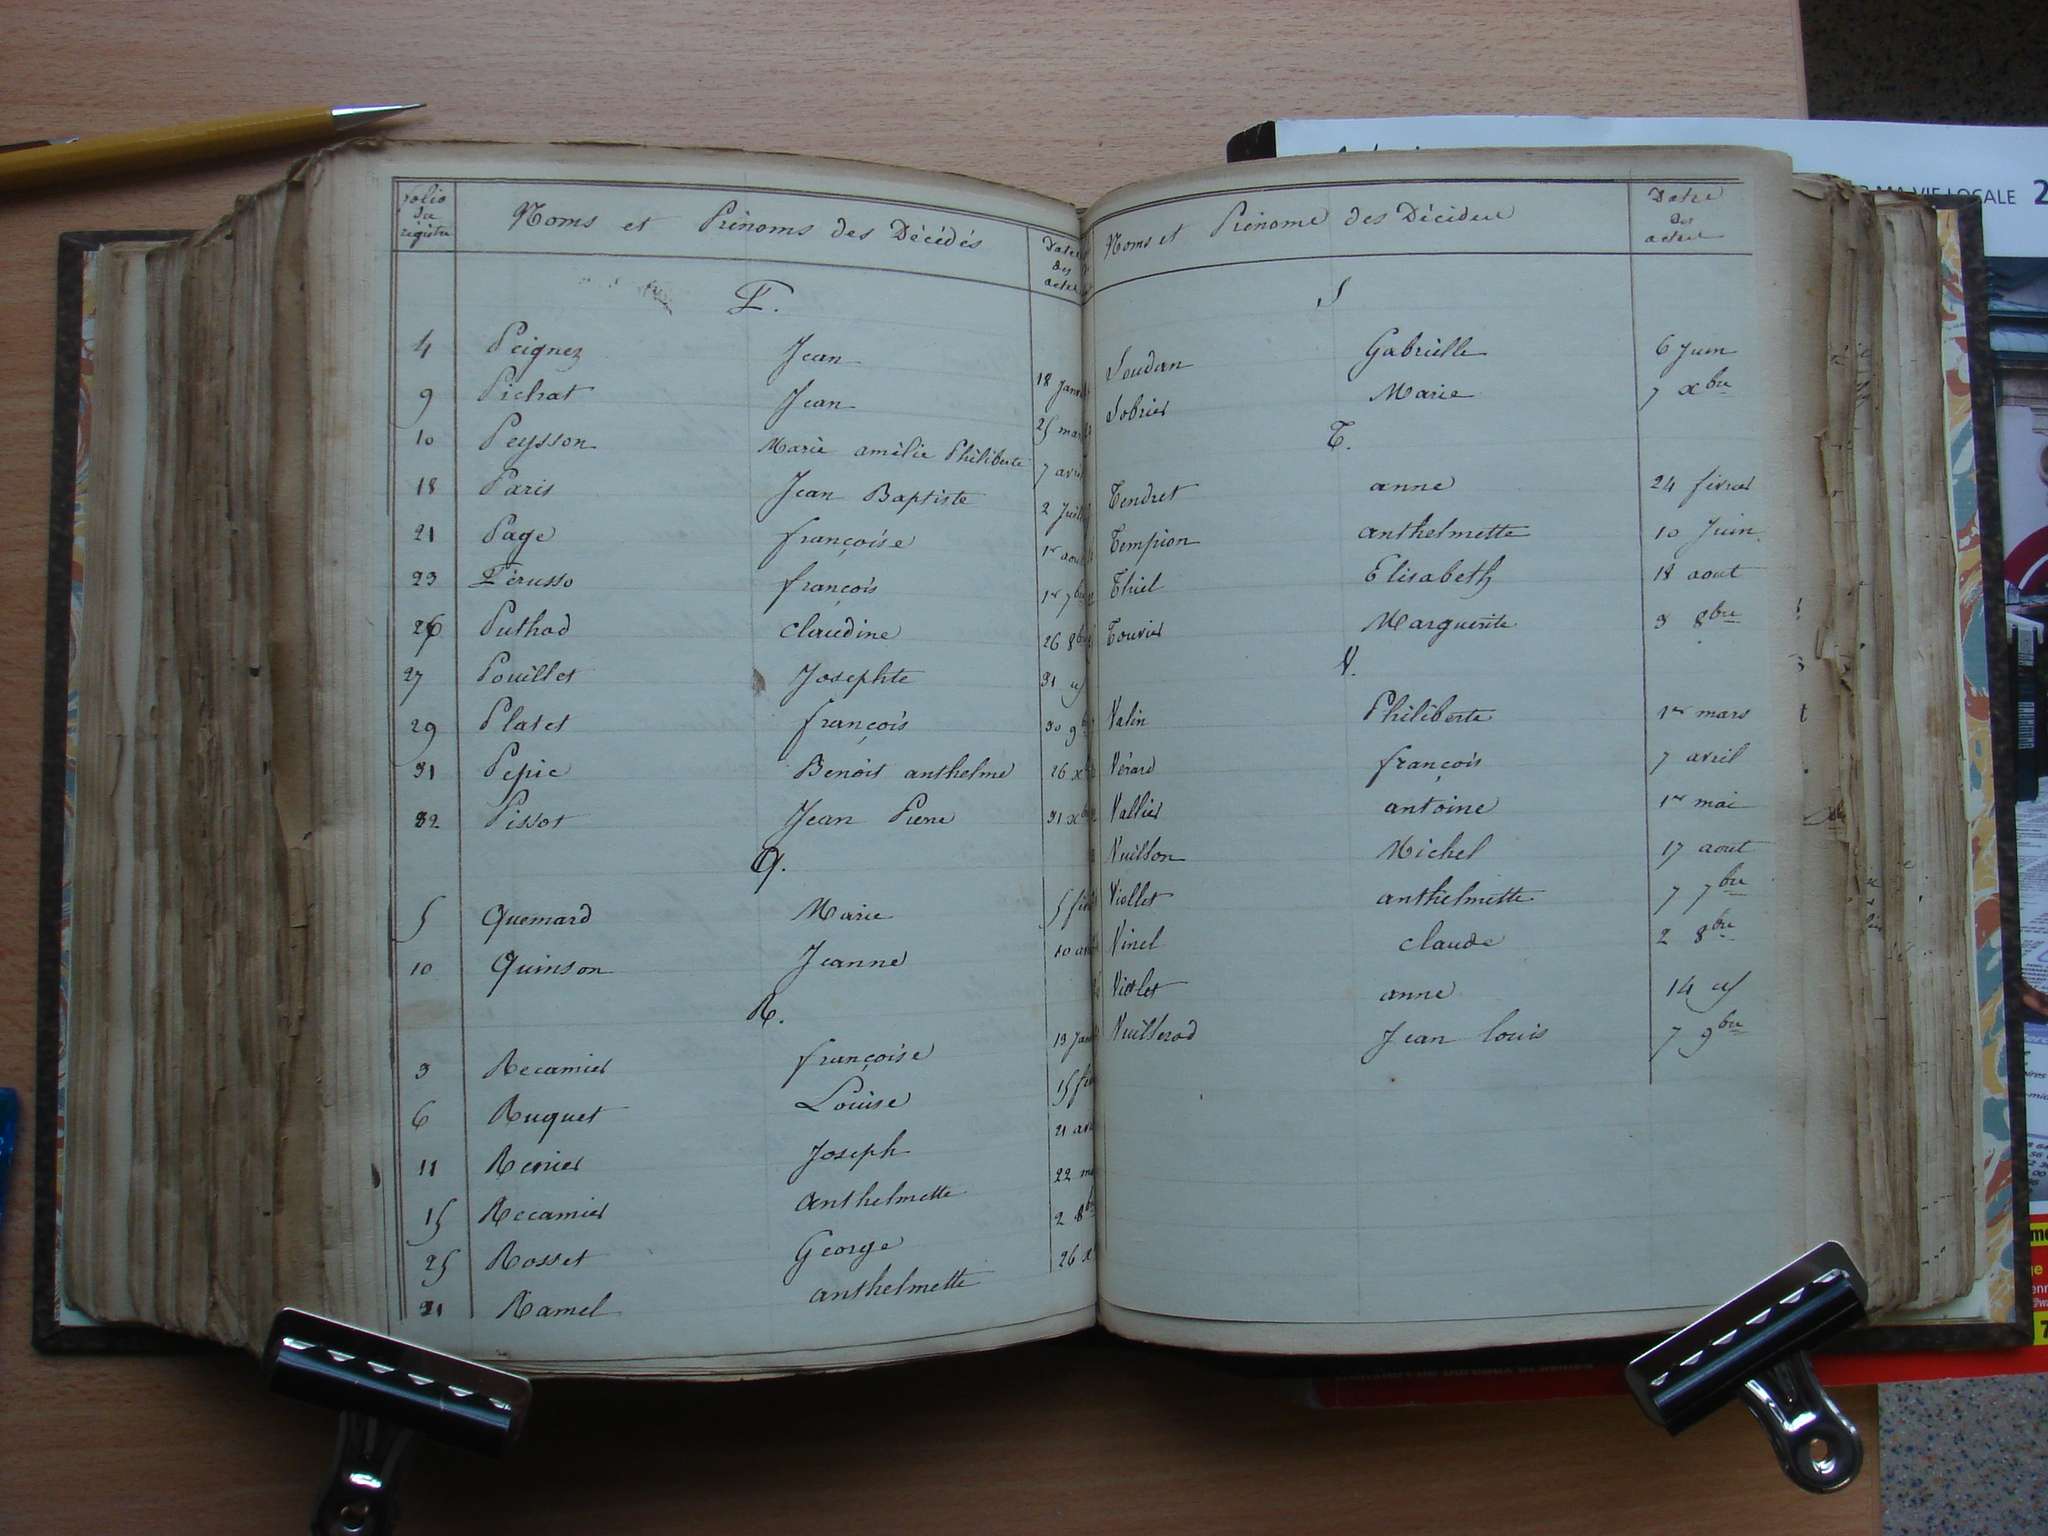 folio du registre Noms et Prénoms des Décédés Dates des actes
P.
4 Peignez Jean 18 Janv
9 Pichat Jean 25 mar
10 Peysson Marie amélie Philiberte 7 avri
18 Paris Jean Baptiste 2 Juill
21 Page françoise 1er aou
23 Pérusso françois 1er 7bre
26 Puthod Claudine 26 8b
27 Pouillet Josephte 31 id
29 Platet françois 30 9b
31 Pepie Benoit anthelme 26 x
32 Pissot Jean Pierre 31 xb
Q.
5 Quemard Marie 5 fév
10 Quinson Jeanne 10 avr
R.
3 Recamier françoise 13 Jan
6 Ruquet Louise 15 fév
11 Renier Joseph 21 avr
15 Recamier anthelmette 22 ma
25 Rosset George 2 8b
31 Ramel anthelmette 26 x
Noms et Prénoms des Décédés Dates des actes
S
Soudan Gabrielle 6 Juin
Sobrier Marie 7 xbre
T.
Tendret anne 24 février
Tempion anthelmette 10 Juin
Thiel Elisabeth 18 aout
Touvier Marguerite 3 8bre
V.
Valin Philiberte 1er mars
Vérard françois 7 avril
Vallier antoine 1er mai
Vuillon Michel 17 aout
Viollet anthelmette 7 7bre
Vinel claude 2 8bre
Violet anne 14 id
Vuillerod Jean louis 7 9bre
MA VIE LOCALE 2